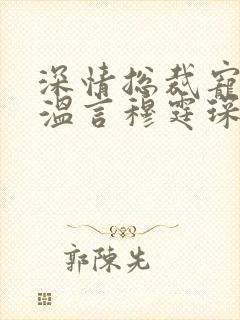 深情总裁宠
温言穆霆琛
郭陈先